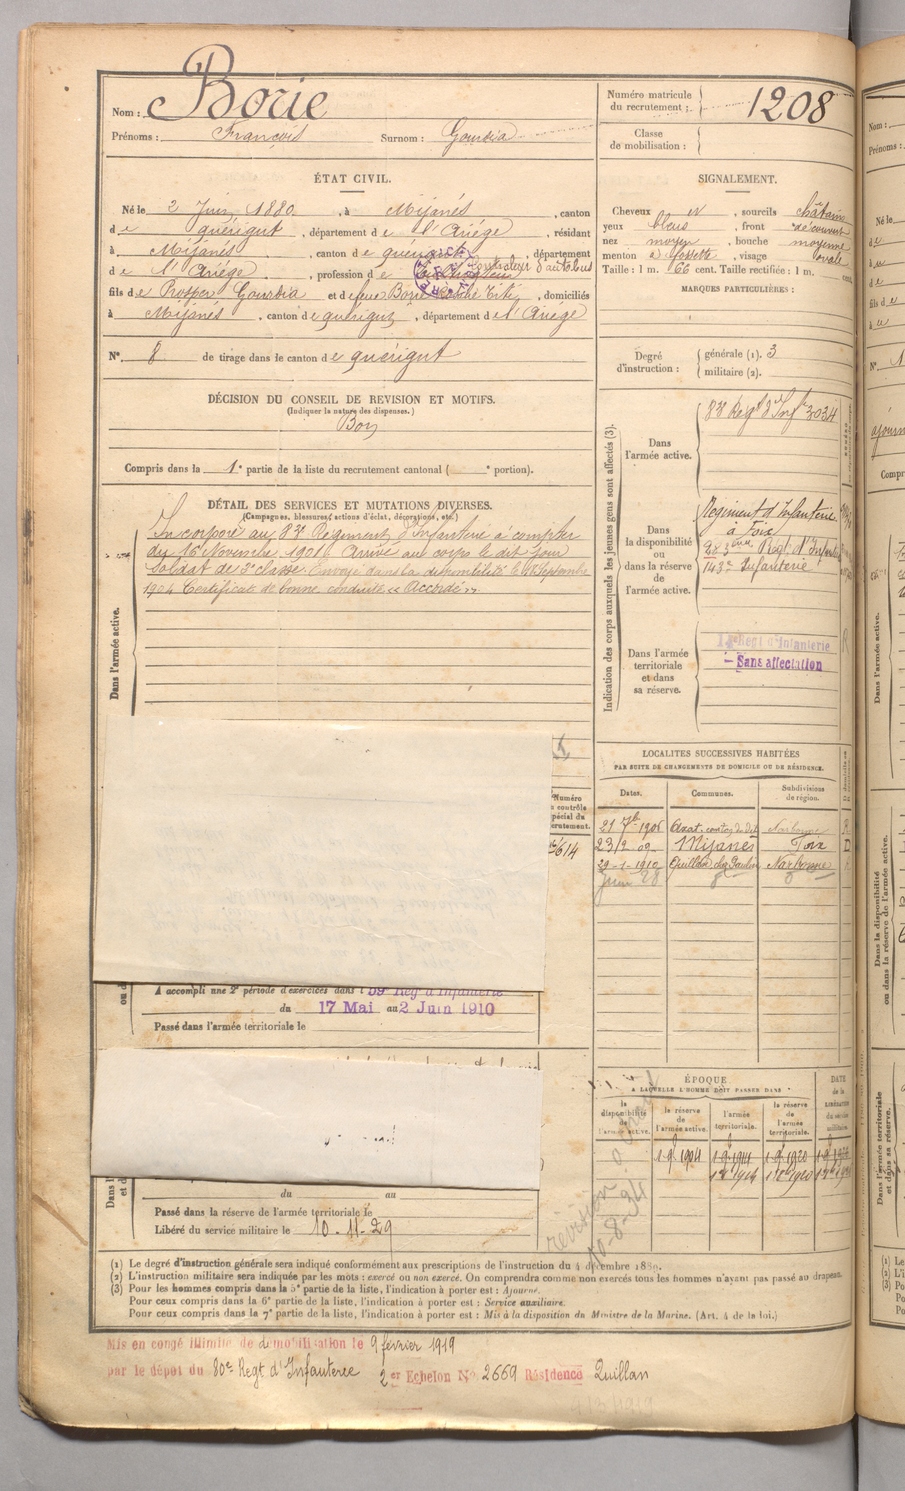 Nom : Borie
Numéro matricule du recrutement : 1208
Prénoms : François Surnom : Gourdia
Classe de mobilisation :
ÉTAT CIVIL.
Né le 2 Juin 1880, à Mijanès, canton
de quérigut, département de l'Ariège, résidant
à Mijanès, canton de quérigut, département
de l'Ariège, profession de Conducteur d'autobus
fils de Prosper Gourdia et de feue Borie, domiciliés
à Mijanès, canton de quérigut, département de l'Ariège
N° 8 de tirage dans le canton de quérigut
SIGNALEMENT.
Cheveux, sourcils châtains
yeux bleus, front découvert
nez moyen, bouche moyenne
menton à fossette, visage ovale
Taille : 1 m. 66 cent. Taille rectifiée : 1 m. cent.
MARQUES PARTICULIÈRES :
Degré d'instruction : générale (1). 3
militaire (2).
DÉCISION DU CONSEIL DE REVISION ET MOTIFS.
(Indiquer la nature des dispenses.)
Bon
Compris dans la 1e partie de la liste du recrutement cantonal ( e portion).
DÉTAIL DES SERVICES ET MUTATIONS DIVERSES.
(Campagnes, blessures, actions d'éclat, décorations, etc.)
Dans l'armée active.
Incorporé au 83e Régiment d'Infanterie à compter
du 16 Novembre 1901 Arrivé au corps le dit jour
Soldat de 2e classe. Envoyé dans la disponibilité le Septembre
1904 Certificat de bonne conduite « Accordé ».
Indication des corps auxquels les jeunes gens sont affectés (3).
Dans l'armée active.
83e Regt d'Infie 3034
Dans la disponibilité ou dans la réserve de l'armée active.
Régiment d'Infanterie
à Foix
Regt d'Infanterie
143e Infanterie
Dans l'armée territoriale et dans sa réserve.
Regt d'Infanterie
Sans affectation
LOCALITÉS SUCCESSIVES HABITÉES
PAR SUITE DE CHANGEMENTS DE DOMICILE OU DE RÉSIDENCE.
Dates. Communes. Subdivisions de région.
21 7bre 1906 Narbonne R
23/2 09 Mijanès Foix D
29-1-1910 Quillan Narbonne
Juin 28
Numéro
contrôle
spécial du
recrutement.
614
A accompli une 2e période d'exercices dans l 59e Reg d'Infanterie
du 17 Mai au 2 Juin 1910
Passé dans l'armée territoriale le
du au
Passé dans la réserve de l'armée territoriale le
Libéré du service militaire le 10.11.29
ÉPOQUE
A LAQUELLE L'HOMME DOIT PASSER DANS
la disponibilité de l'armée active.
la réserve de l'armée active.
l'armée territoriale.
la réserve de l'armée territoriale.
DATE de la libération du service militaire.
1-9-1904 1-9-1914 1-9-1920
révision
10-8-34
(1) Le degré d'instruction générale sera indiqué conformément aux prescriptions de l'instruction du 4 décembre 1889.
(2) L'instruction militaire sera indiquée par les mots : exercé ou non exercé. On comprendra comme non exercés tous les hommes n'ayant pas passé au drapeau.
(3) Pour les hommes compris dans la 5e partie de la liste, l'indication à porter est : Ajourné.
Pour ceux compris dans la 6e partie de la liste, l'indication à porter est : Service auxiliaire.
Pour ceux compris dans la 7e partie de la liste, l'indication à porter est : Mis à la disposition du Ministre de la Marine. (Art. 4 de la loi.)
Mis en congé illimité de démobilisation le 9 février 1919
par le dépôt du 80e Regt d'Infanterie 2er Echelon No 2669 Résidence Quillan